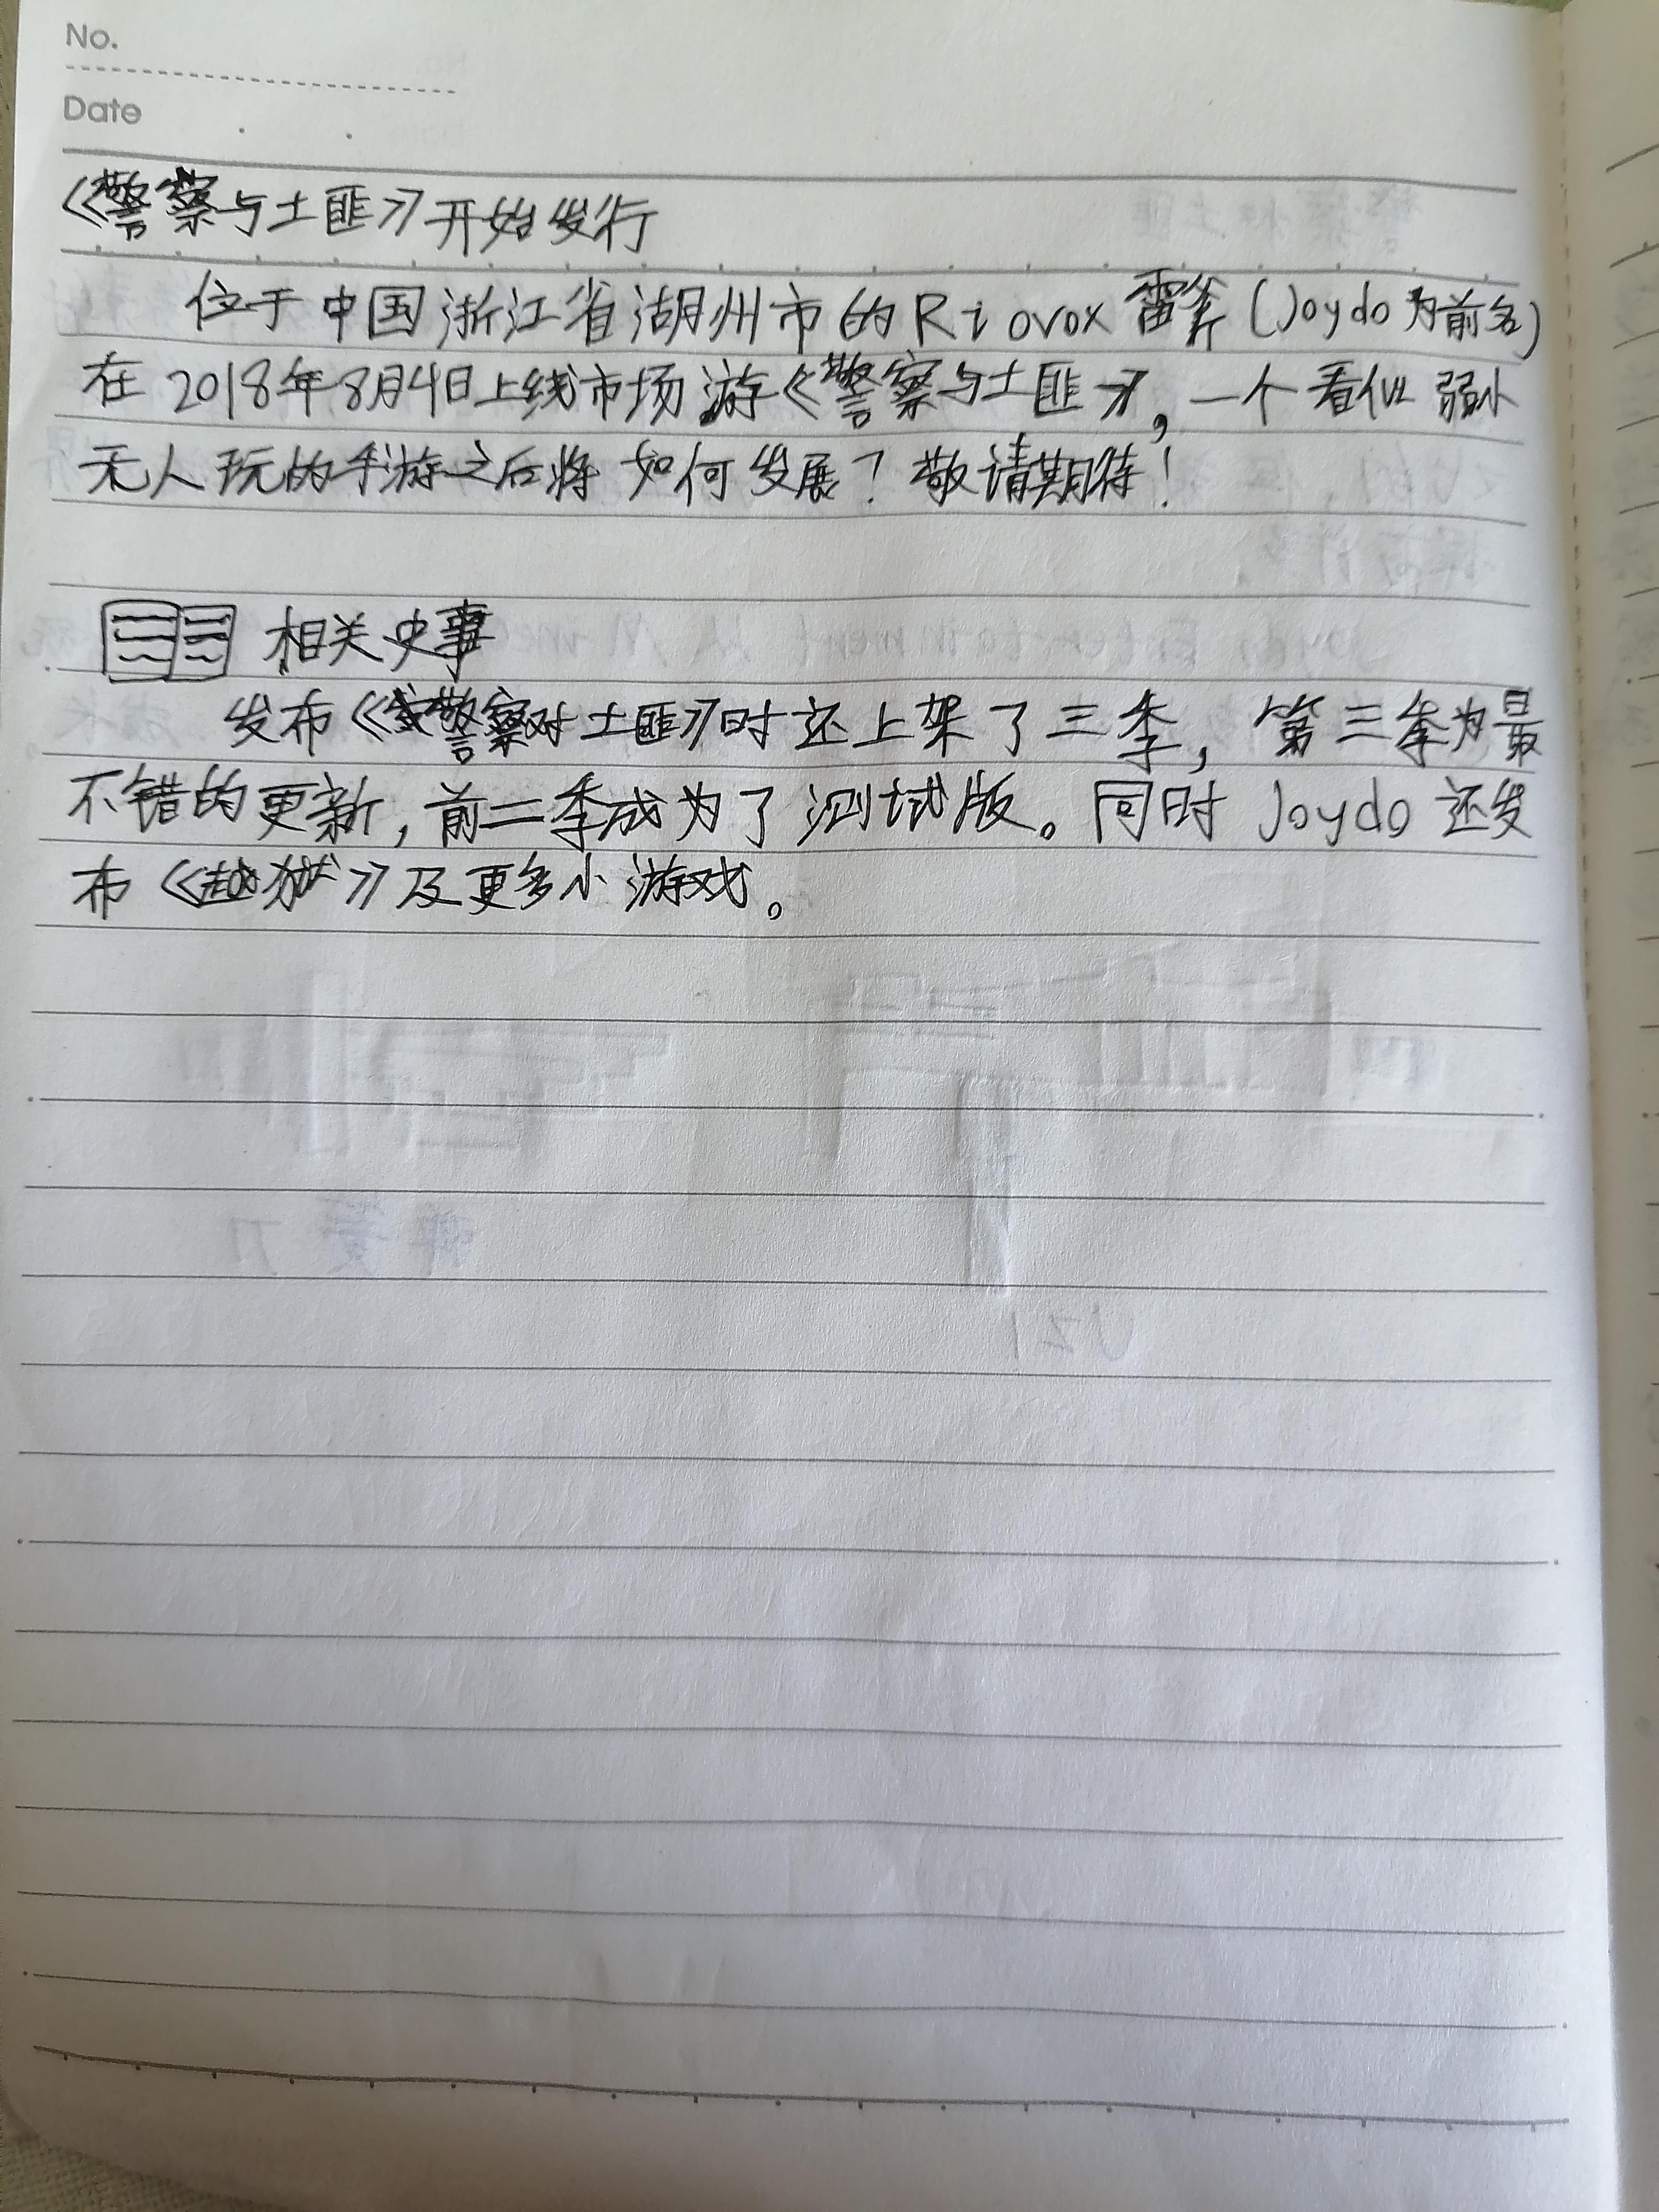 No.
Date
《警察与土匪》开始发行
位于中国浙江省湖州市的Riovox雷斧(Joydo为前名)
在2018年8月4日上线市场游《警察与土匪》,一个看似弱小
无人玩的手游之后将如何发展?敬请期待!
相关史事
发布《警察对土匪》时还上架了三季,第三季为最
不错的更新,前二季成为了测试版。同时Joydo还发
布《越狱》及更多小游戏。
UZI